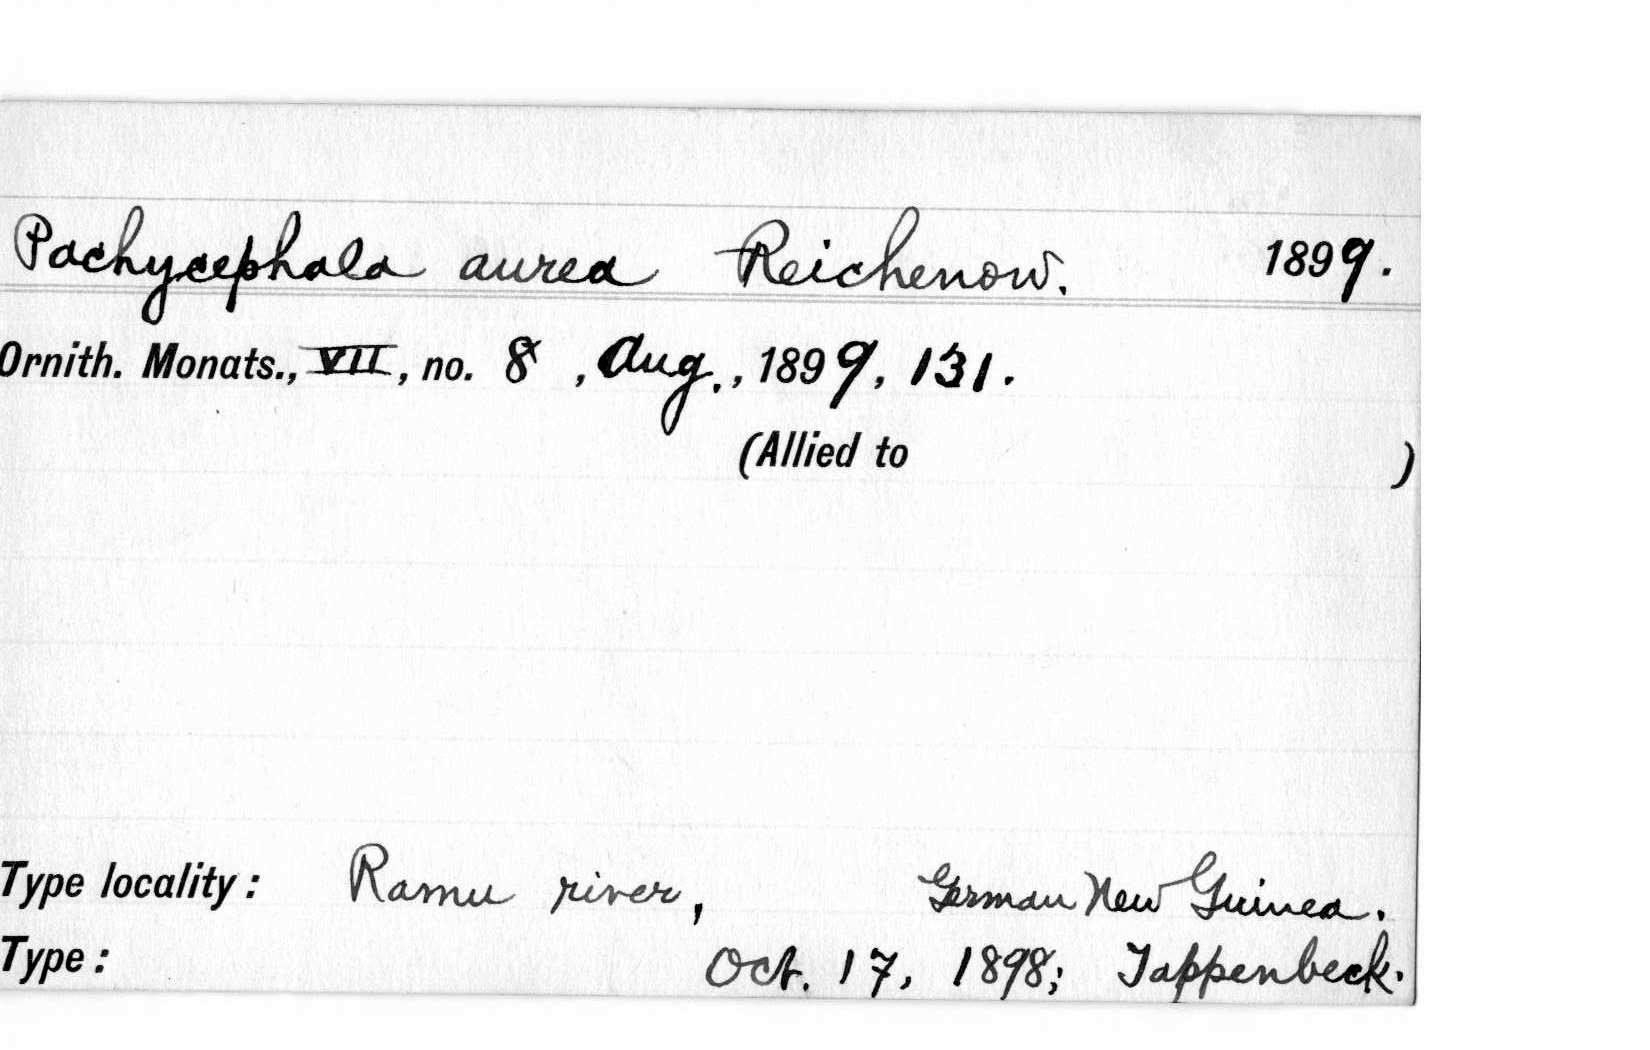 Pachycephala aurea Reichenow. 1899.
Ornith. Monats., VII, no. 8, Aug., 1899, 131.
(Allied to )
Type locality: Ramu river, German New Guinea.
Type: Oct. 17, 1898; Tappenbeck.